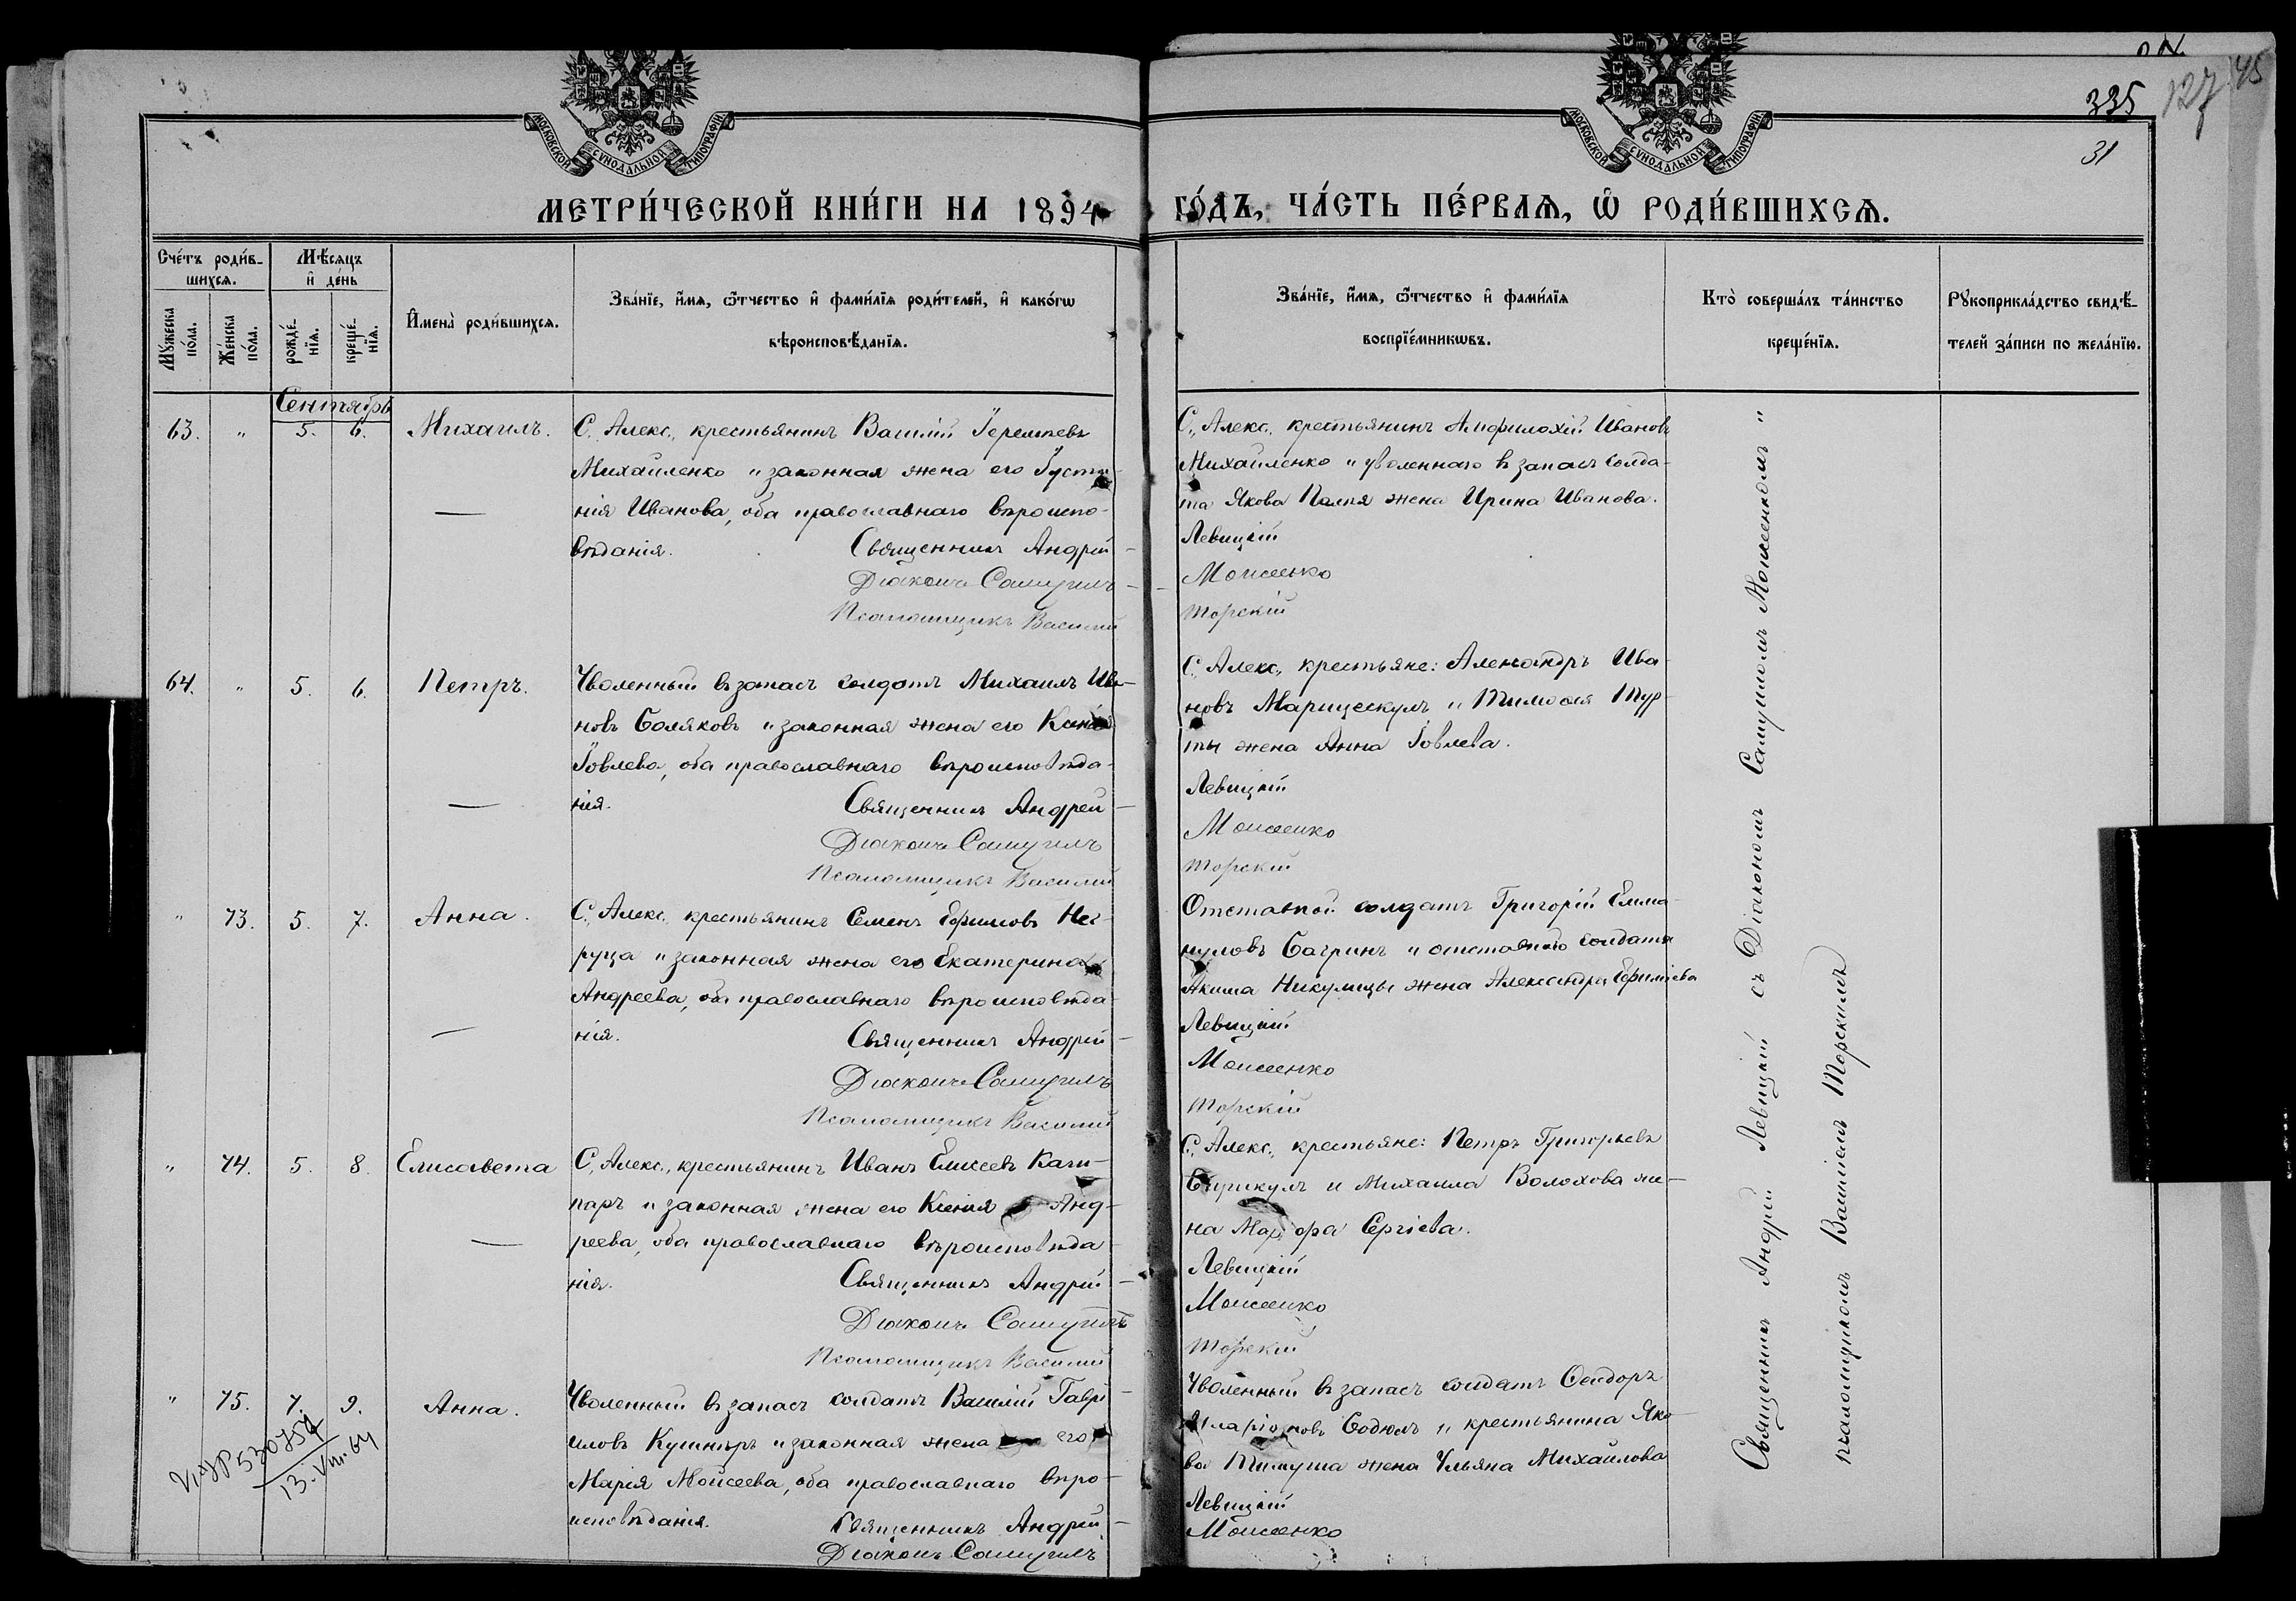 335
127
45
31
МОСКОВСКОЙ СѴНОДАЛЬНОЙ ТИПОГРАФІИ
МОСКОВСКОЙ СѴНОДАЛЬНОЙ ТИПОГРАФІИ
МЕТРИ́ЧЕСКОЙ КНИ́ГИ НА 1894 ГО́ДЪ, ЧА́СТЬ ПЕ́РВАѦ, Ѡ РОДИ́ВШИХСѦ.
Счéтъ роди́в-
шихсѧ.
Мꙋ́жеска по́ла.
Же́нска по́ла.
Мѣ́сѧцъ
и҆ де́нь
рожде́-нїѧ.
креще́-нїѧ.
И҆мена̀ роди́вшихсѧ.
Зва́нїе, и҆́мѧ, ѻ҆́тчество и҆ фами́лїѧ роди́телей, и҆ како́гѡ
вѣроисповѣ́данїѧ.
Зва́нїе, и҆́мѧ, ѻ҆́тчество и҆ фами́лїѧ
воспрїе́мникѡвъ.
Кто̀ соверша́лъ та́инство
креще́нїѧ.
Рꙋкоприкла́дство свидѣ́-
телей за́писи по жела́нїю.
Сентябрь
63. " 5. 6. Михаилъ.
С. Алекс., крестьянинъ Василій Іереміевъ
Михайленко и законная жена его Іусти-
нія Иванова, оба православнаго вѣроиспо-
вѣданія. Священникъ Андрей
Діаконъ Самуилъ
Псаломщикъ Василій
С. Алекс. крестьянинъ Амфилохій Ивановъ
Михайленко и уволеннаго въ запасъ солда-
та Якова Палія жена Ирина Иванова.
Левицкій
Моисеенко
Торскій
64. " 5. 6. Петръ.
Уволенный въ запасъ солдатъ Михаилъ Ива-
новъ Боляковъ и законная жена его Ксенія
Іовлева, оба православнаго вѣроисповѣда-
нія. Священникъ Андрей
Діаконъ Самуилъ
Псаломщикъ Василій
С. Алекс., крестьяне: Александръ Ива-
новъ Марицескулъ и Тимоѳея Тур-
ты жена Анна Іовлева.
Левицкій
Моисеенко
Торскій
" 73. 5. 7. Анна.
С. Алекс. крестьянинъ Семенъ Ефимовъ Нег-
руца и законная жена его Екатерина
Андреева, оба православнаго вѣроисповѣда-
нія. Священникъ Андрей
Діаконъ Самуилъ
Псаломщикъ Василій
Отставной солдатъ Григорій Емма-
нуиловъ Багринъ и отставного солдата
Акима Никулицы жена Александра Ефиміева
Левицкій
Моисеенко
Торскій
" 74. 5. 8. Елисавета
С. Алекс., крестьянинъ Иванъ Елисеевъ Каш-
паръ и законная жена его Ксенія Анд-
реева, оба православнаго вѣроисповѣда-
нія. Священникъ Андрей
Діаконъ Самуилъ
Псаломщикъ Василій
С. Алекс., крестьяне: Петръ Григорьевъ
и Михаила Волохова же-
на Марѳа Сергіева.
Левицкій
Моисеенко
Торскій
" 75. 7. 9. Анна.
Уволенный въ запасъ солдатъ Василій Гаврі-
иловъ Кушниръ и законная жена его
Марія Моисеева, оба православнаго вѣро-
исповѣданія. Священникъ Андрей
Діаконъ Самуилъ
Уволенный въ запасъ солдатъ Сидоръ
Иларіоновъ Бодюлъ и крестьянина Яко-
ва Тимуша жена Ульяна Михайлова
Левицкій
Моисеенко
Священникъ Андрей Левицкій съ Діакономъ Самуиломъ Моисеенкомъ и
псаломщикомъ Василіемъ Торскимъ
13.VIII.64